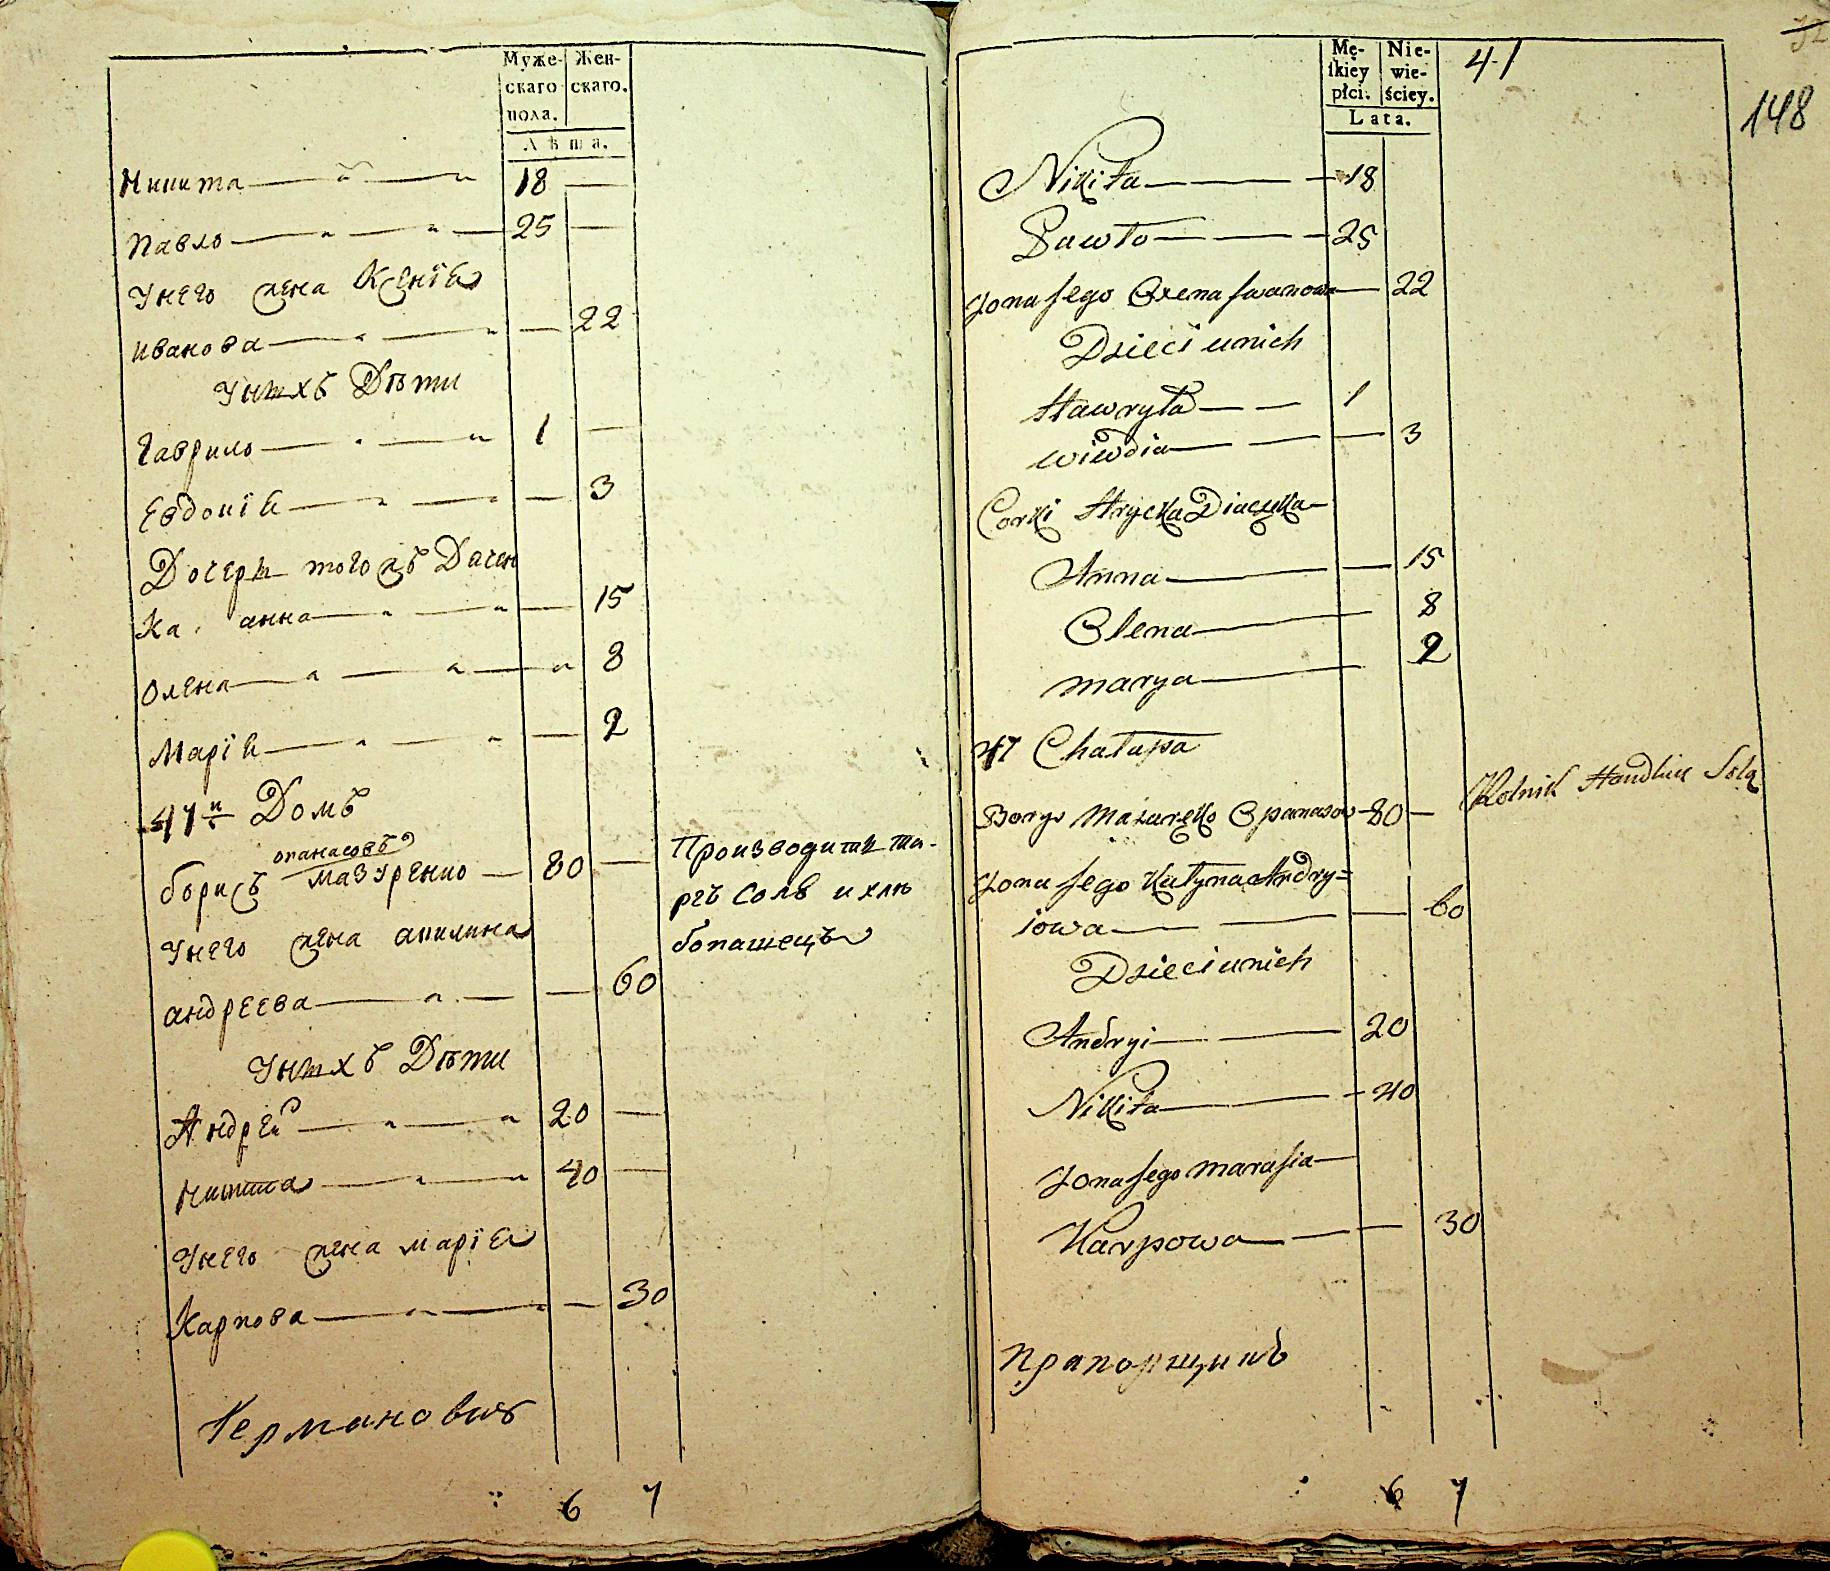 Муже-
скаго
пола.
Жен-
скаго.
Лѣта.
Никита 18
Павло 25
Унего жена Ксенїя
иванова 22
Унихъ Дѣти
Гаврило 1
Евдокїя 3
Дочери тогожъ Дячен
ка анна 15
Олена 8
Марїя 2
47й Домъ
опанасовъ
борисъ мазуренко 80
Унего жена акилина
андреева 60
Унихъ Дѣти
Андрей 20
Никита 40
Унего жена марїя
Карпова 30
Производити то-
ргъ солѣ и хлѣ
бопашецъ
Германовичъ
6 7
Mę-
skiey
płci.
Nie-
wie-
ściey.
Lata.
41
148
Nikita 18
Pawło 25
Zona jego Oxena Iwanowa 22
Dzieci unich
Hawryło 1
wiwdia 3
Corki Hrycka Diaczka
Anna 15
Olena 8
marya 2
47 Chałupa
Borys Mazureko Opanasow 80
Rolnik Handluie Solą
Zona jego Kułyna Andry=
iowa 60
Dzieci unich
Andryi 20
Nikita 40
Zona jego marusia
Karpowa 30
прапорщикъ
6 7